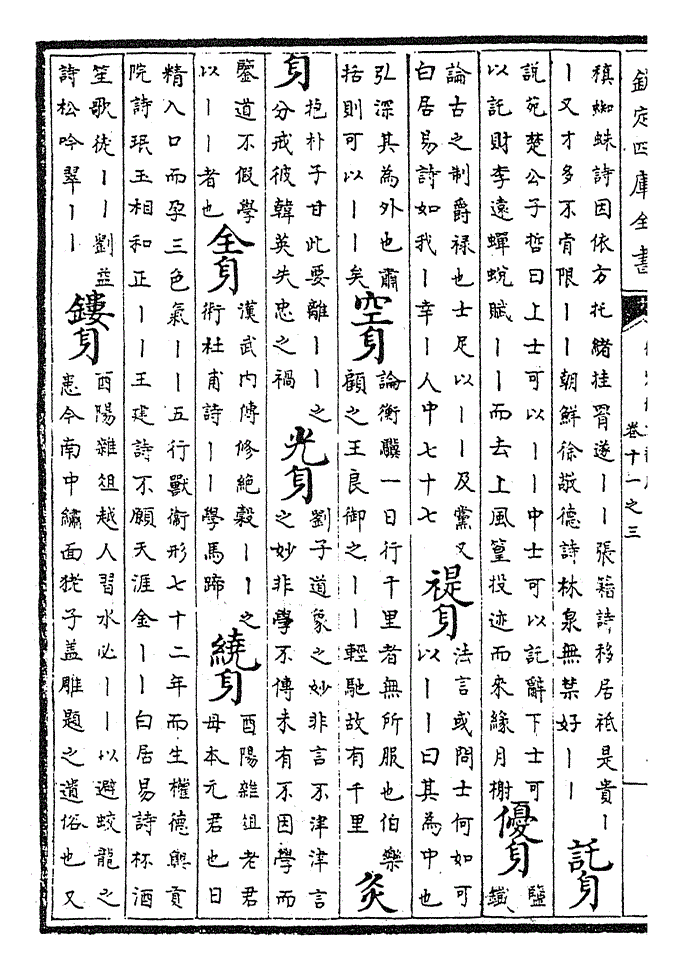 欽定四庫全書
卷十一之三
稹蜘蛛詩因依方托緒挂罥遂丨丨張籍詩移居祗是貴丨
丨又才多不肯限丨丨朝鮮徐敬德詩林泉無禁好丨丨
託身
說苑楚公子哲曰上士可以丨丨中士可以託辭下士可
以託財李遠蟬蛻賦丨丨而去上風篁投迹而來緣月榭
優身
鹽
鐵
論古之制爵禄也士足以丨丨及黨又
白居易詩如我丨幸丨人中七十七
禔身
法言或問士何如可
以丨丨曰其為中也
弘深其為外也肅
括則可以丨丨矣
空身
論衡驥一日行千里者無所服也伯樂
顧之王良御之丨丨輕馳故有千里
灸
身
抱朴子甘此要離丨丨之
分戒彼韓英失忠之禍
光身
劉子道象之妙非言不津津言
之妙非學不傳未有不因學而
鑒道不假學
以丨丨者也
全身
漢武内傳修絶穀丨丨之
術杜甫詩丨丨學馬蹄
繞身
酉陽雜俎老君
母本元君也日
精入口而孕三色氣丨丨五行獸衛形七十二年而生權德輿貢
院詩珉玉相和正丨丨王建詩不願天涯金丨丨白居易詩杯酒
笙歌徒丨丨劉益
詩松吟翠丨丨
鏤身
酉陽雜俎越人習水必丨丨以避蛟龍之
患今南中繡面狫子盖雕題之遺俗也又